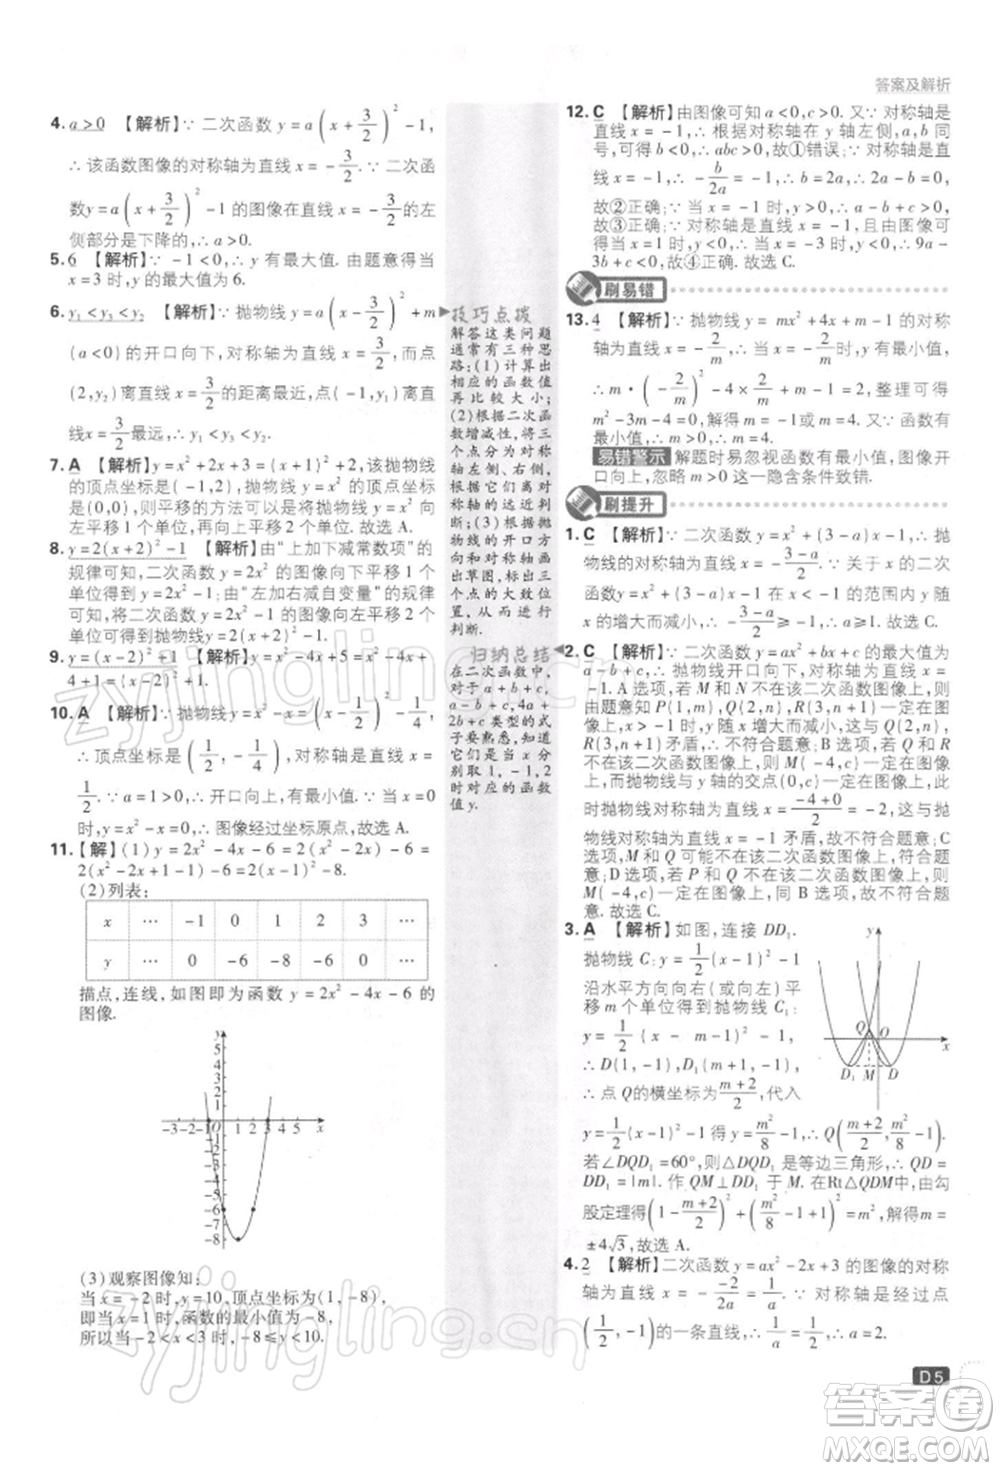 答案及解析
4. a>0 【解析】∵ 二次函数 y=a(x+3/2)²-1,
∴ 该函数图像的对称轴为直线 x=-3/2. ∵ 二次函
数y=a(x+3/2)²-1 的图像在直线 x=-3/2的左
侧部分是下降的,∴ a>0.
5. 6 【解析】∵ -1<0,∴ y 有最大值. 由题意可得当
x=3 时,y 的最大值为 6.
6. y₁<y₃<y₂ 【解析】∵ 抛物线 y=a(x-3/2)²+m
(a<0)的开口向下,对称轴为直线 x=3/2,而点
(2,y₂)离直线 x=3/2的距离最近,点(-1,y₁)离直
线x=3/2最远,∴ y₁<y₃<y₂.
7. A 【解析】∵ y=x²+2x+3=(x+1)²+2,该抛物线
的顶点坐标是(-1,2),抛物线 y=x² 的顶点坐标
是(0,0),则平移的方法可以是将抛物线 y=x² 向
左平移1个单位,再向上平移2个单位.故选 A.
8. y=2(x+2)²-1 【解析】由“上加下减常数项”的
规律可知,二次函数 y=2x² 的图像向下平移 1 个
单位得 y=2x²-1;由“左加右减自变量”的规律
可知,将二次函数 y=2x²-1 的图像向左平移 2 个
单位可得到抛物线y=2(x+2)²-1.
9. y=(x-2)²+1 【解析】y=x²-4x+5=x²-4x+
4+1=(x-2)²+1.
10. A 【解析】∵ 抛物线 y=x²-x=(x-1/2)²-1/4,
∴ 顶点坐标是(1/2,-1/4),对称轴是直线 x=
1/2. ∵ a=1>0,∴ 开口向上,有最小值. ∵ 当 x=0
时,y=x²-x=0,∴ 图像经过坐标原点.故选 A.
11. 【解】(1) y=2x²-4x-6=2(x²-2x)-6=
2(x²-2x+1-1)-6=2(x-1)²-8.
(2)列表:
x … -1 0 1 2 3 …
y … 0 -6 -8 -6 0 …
描点,连线,如图即为函数 y=2x²-4x-6 的
图像.
y
5
4
3
2
1
-3-2-1O 1 2 3 4 5 x
-1
-2
-3
-4
-5
-6
-7
-8
(3)观察图像知:
当 x=-2 时,y=10,顶点坐标为(1,-8),
即当 x=1 时,函数的最小值为-8,
所以当-2<x<3 时,-8≤y<10.
技巧点拨
解答这类问题
通常有三种思
路:(1)计算出
相应的函数值
再比较大小;
(2)根据二次函
数增减性,将三
个点分为对称
轴左侧、右侧,
根据它们离对
称轴的远近判
断;(3)根据抛
物线的开口方
向和对称轴画
出草图,标出三
个点的大致位
置,从而进行
判断.
归纳总结
在二次函数中,
对于 a+b+c,
a-b+c,4a+
2b+c 类型的式
子要熟悉,知道
它们是当 x 分
别取 1,-1,2
时对应的函数
值 y.
12. C 【解析】由图像可知 a<0,c>0. 又∵ 对称轴是
直线 x=-1,∴ 根据对称轴在 y 轴左侧,a,b 同
号,可得 b<0,∴ abc>0,故①错误;∵ 对称轴是
直线 x=-1,∴ -b/2a=-1,∴ b=2a,∴ 2a-b=0,
故②正确;∵ 对称轴是直线 x=-1,且由图像可
得当 x=1 时,y<0,∴ 当 x=-3 时,y<0,∴ 9a-
3b+c<0,故④正确.故选 C.
刷易错
13. 4 【解析】∵ 抛物线 y=mx²+4x+m-1 的对称
轴为直线 x=-2/m,∴ 当 x=-2/m时,y有最小值,
∴ m·(-2/m)²-4×2/m+m-1=2,整理可得
m²-3m-4=0,解得 m=-1或m=4. 又∵ 函数有
最小值,∴ m>0,∴ m=4.
易错警示 解题时易忽视函数有最小值,图像
开口向上,忽略 m>0 这一隐含条件致错.
刷提升
1. C 【解析】∵ 二次函数 y=-x²+(3-a)x+1,∴ 抛
物线的对称轴为直线 x=(3-a)/2. ∵ 关于 x 的二次
函数 y=-x²+(3-a)x+1 在 x<-1 的范围内 y 随
x 的增大而减小,∴ (3-a)/2≤-1,∴ a≥5.故选 C.
2. C 【解析】∵ 二次函数 y=ax²+bx+c 的最大值为
n,∴ 抛物线开口向下,对称轴为直线 x=-1. A 选项,若 M 和 N 不在该二次函数图像上,则
由题意知 P(-1,n),Q(2,n),R(3,n+1)一定在图像上,而当x>-1时,y 随 x 增大而减小,与 Q(2,n),
R(3,n+1)矛盾,∴ 不符合题意;B 选项,若 Q 和
R 不在该二次函数图像上,则 M(-4,c)一定在图像
上,而抛物线与 y 轴的交点(0,c)一定在图像上,此
时抛物线对称轴为直线 x=(-4+0)/2=-2,这与抛
物线对称轴为直线 x=-1 矛盾,故不符合题意;C
选项,M 和 Q 可能不在该二次函数图像上,符合题
意;D 选项,若 P 和 R 不在该二次函数图像上,则
M(-4,c)一定在图像上,同 B 选项,不符合题
意.故选 C.
3. A 【解析】如图,连接 DD₁.
抛物线 C:y=1/2(x-1)²-1
沿水平方向向右(或向左)平
移 m 个单位得到抛物线 C₁:
y=1/2(x-m-1)²-1,
∴ D(1,-1),D₁(m+1,-1),
∴ 点 Q的横坐标为(m+2)/2,代入
y=1/2(x-1)²-1 得 y=m²/8-1,∴ Q((m+2)/2,m²/8-1).
若∠DQD₁=60°,则△DQD₁ 是等边三角形,∴ QD=
DD₁=|m|. 作 QM⊥DD₁ 于 M. 在 Rt△QDM 中,由勾
股定理得(1-(m+2)/2)²+(m²/8-1+1)²=m²,解得 m=
±4√3,故选 A.
y
Q
O
x
D₁ M D
4. 2 【解析】二次函数 y=ax²-2x+3 的图像的对称
轴为直线 x=-(-2)/2a=1/a. ∵ 对称轴是经过点
(1/2,-1)的一条直线,∴ 1/a=1/2,∴ a=2.
D5
zyjingling.cn
zyjingling.cn
答案圈
MXQE.COM